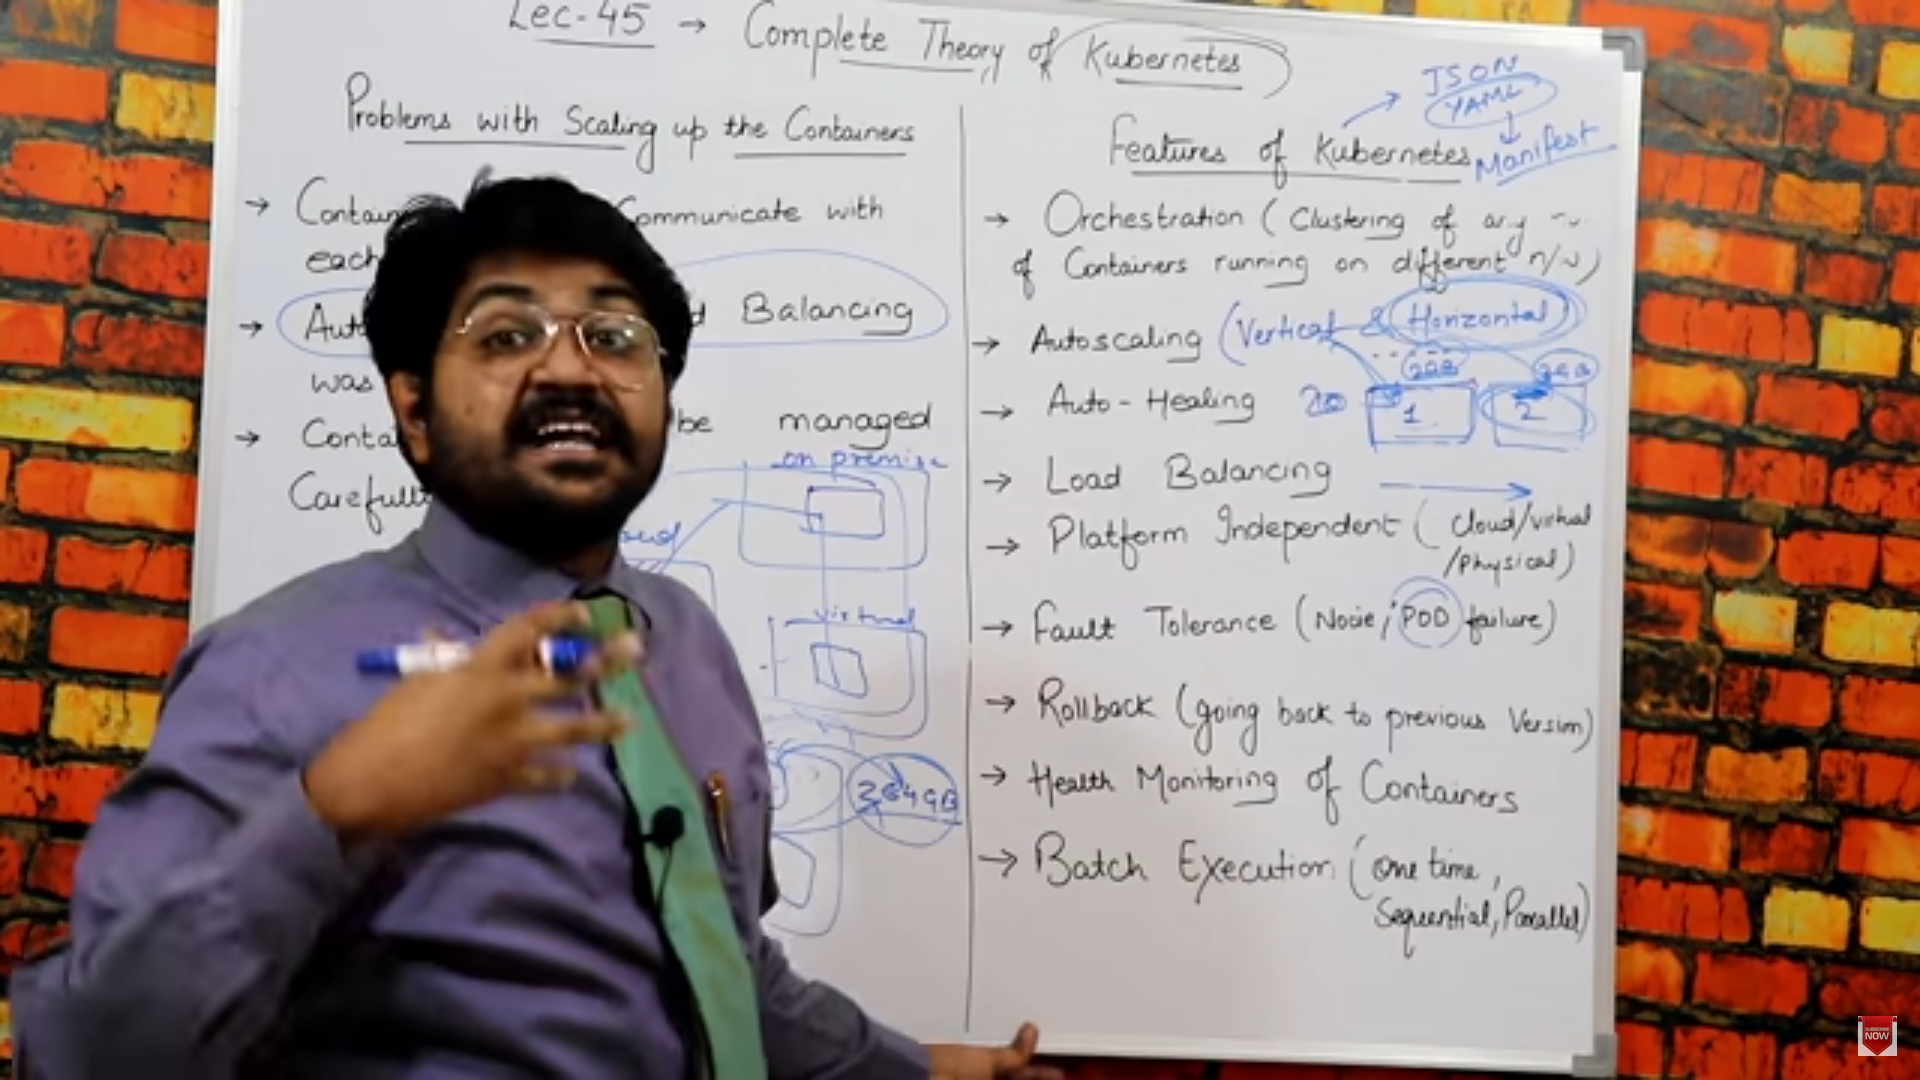 Lec-45 → Complete Theory of Kubernetes
Problems with Scaling up the Containers
→ Communicate with
each
→ Balancing
was
→ be managed
Carefull
on premise
virtual
Features of Kubernetes
JSON
YAML
Manifest
→ Orchestration (Clustering of any
of Containers running on different n/w)
→ Autoscaling (Vertical & Horizontal)
→ Auto-Healing
1
2
→ Load Balancing
→ Platform Independent (Cloud/virtual
/Physical)
→ Fault Tolerance (Node, POD failure)
→ Rollback (going back to previous Version)
→ Health Monitoring of Containers
→ Batch Execution (One time,
Sequential, Parallel)
SUBSCRIBE
NOW